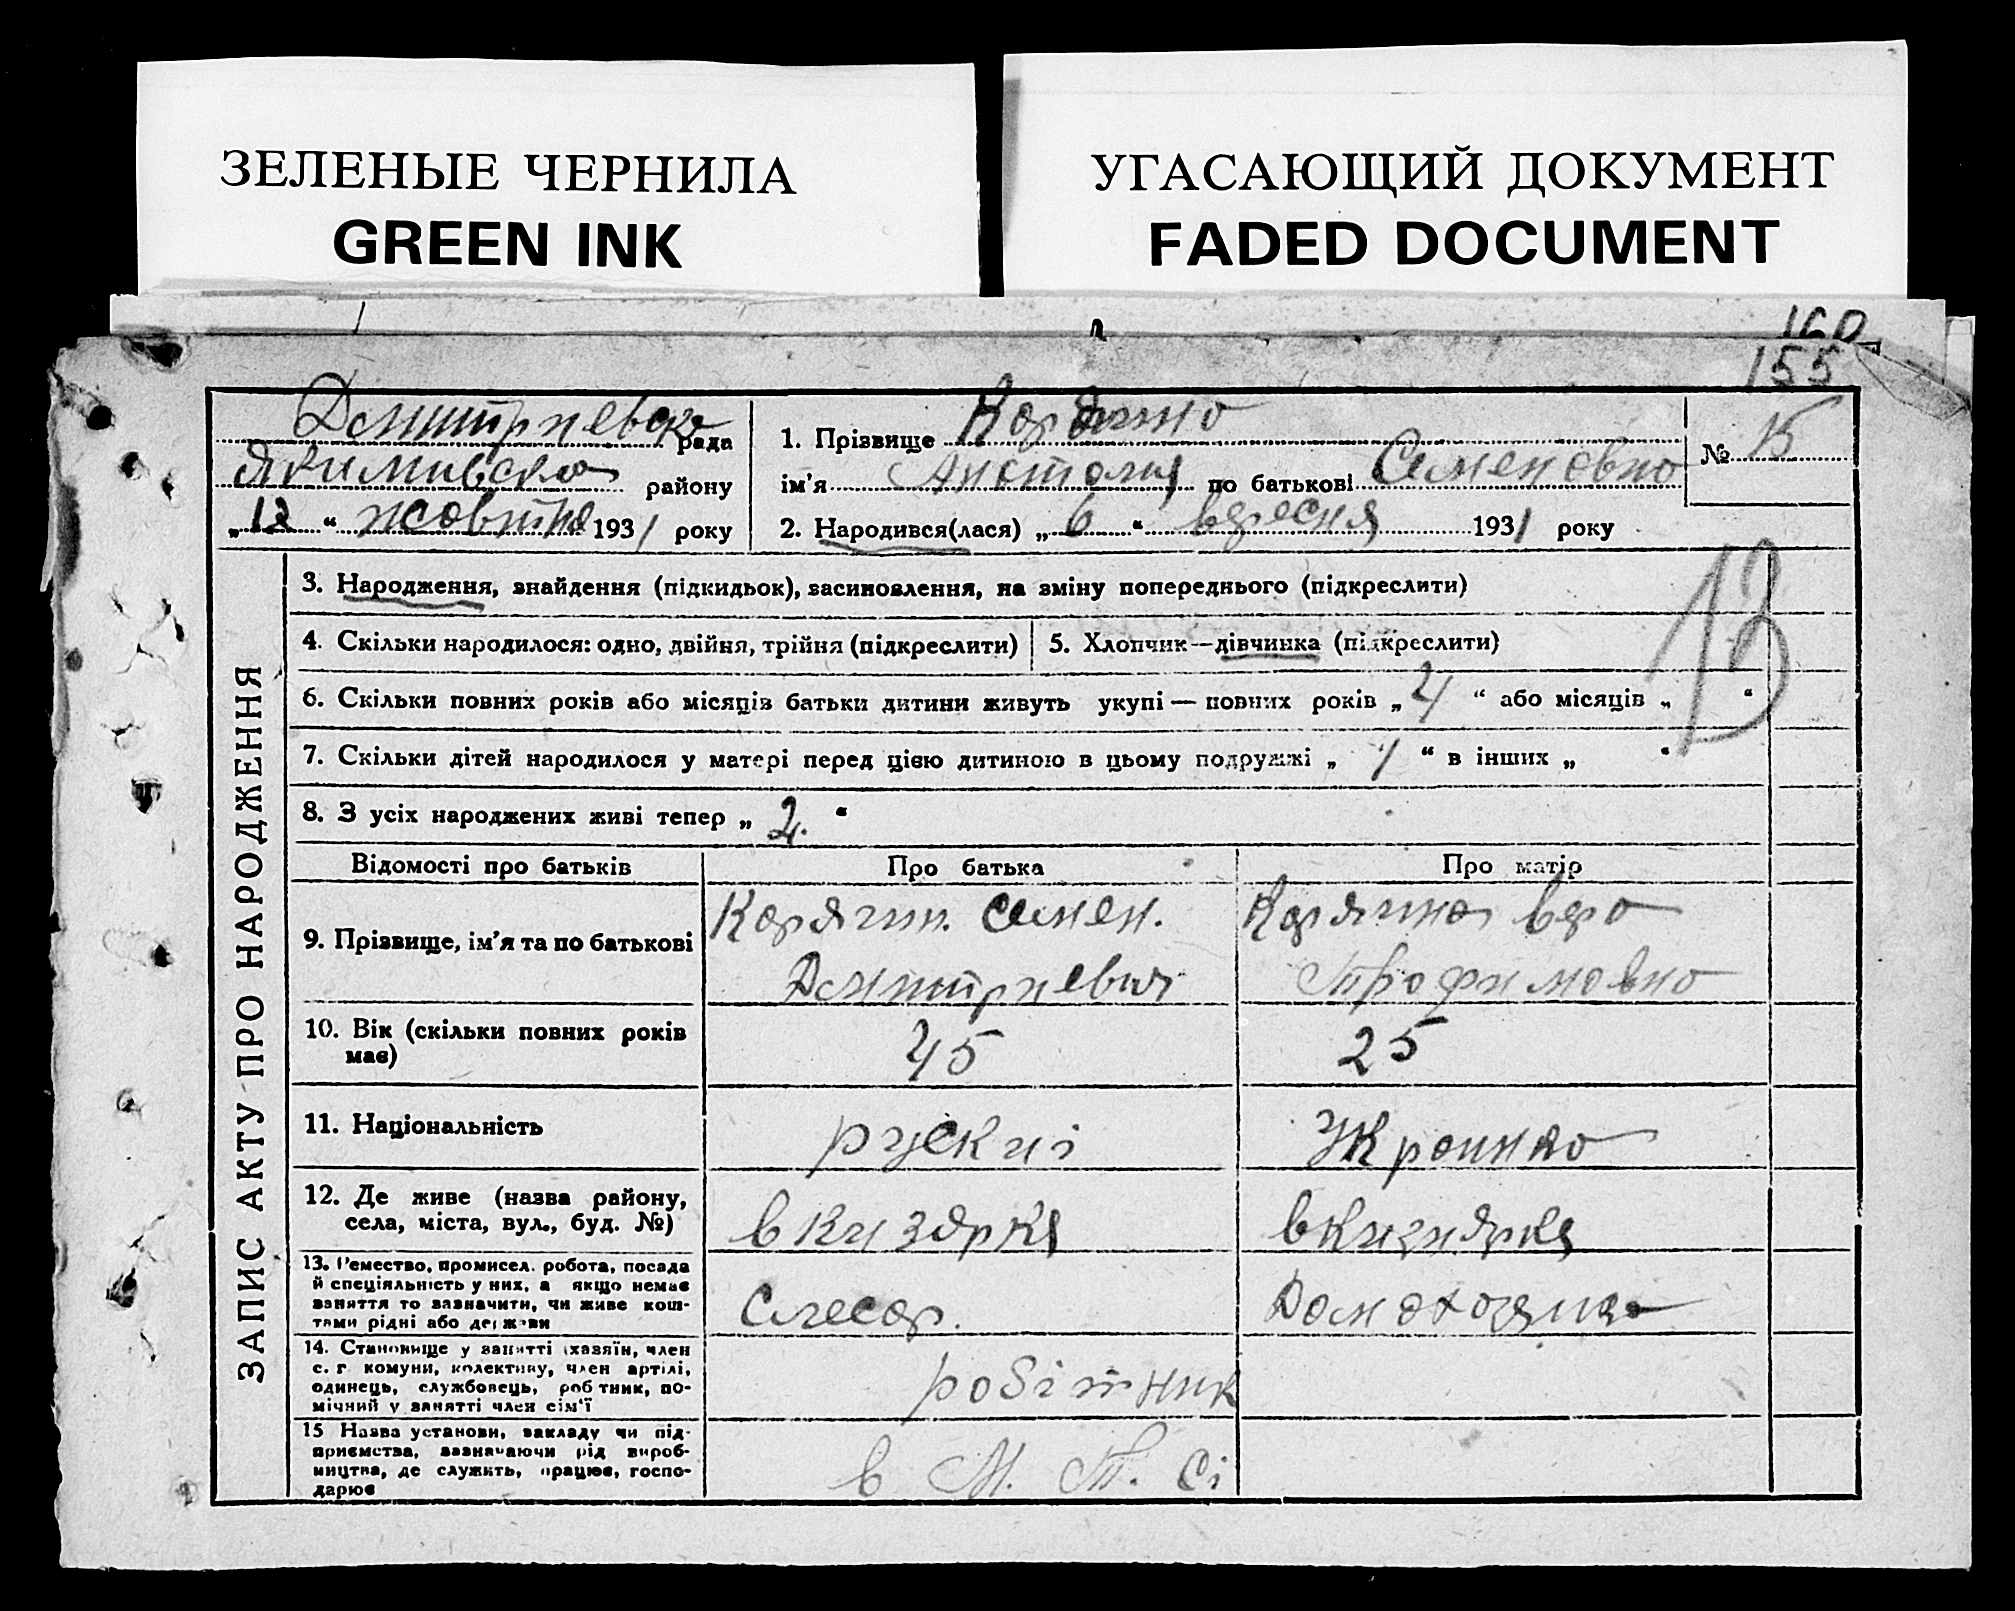 ЗЕЛЕНЫЕ ЧЕРНИЛА
GREEN INK
УГАСАЮЩИЙ ДОКУМЕНТ
FADED DOCUMENT
160
155
Дмитриевска рада
Якимивска району
„12“ жовтня 1931 року
1. Прізвище Карягино
ім’я Анатолия по батькові Семеновно
2. Народився(лася) „6“ вересня 1931 року
№ 15
ЗАПИС АКТУ ПРО НАРОДЖЕННЯ
3. Народження, знайдення (підкидьок), засиновлення, на зміну попереднього (підкреслити)
13
4. Скільки народилося: одно, двійня, трійня (підкреслити)
5. Хлопчик—дівчинка (підкреслити)
6. Скільки повних років або місяців батьки дитини живуть укупі — повних років „4“ або місяців „ “
7. Скільки дітей народилося у матері перед цією дитиною в цьому подружжі „1“ в інших „ “
8. З усіх народжених живі тепер „2.“
Відомості про батьків
Про батька
Про матір
9. Прізвище, ім’я та по батькові
Карягин. Семен.
Дмитриевич
Карягина вера
Трофимовно
10. Вік (скільки повних років
має)
45
25
11. Національність
рускиі
Украинка
12. Де живе (назва району,
села, міста, вул., буд. №)
в Кизярке
в Кизиярке
13. Ремество, промисел, робота, посада
й спеціяльність у них, а якщо немає
заняття то зазначити, чи живе кош-
тами рідні або держави
Слесар.
Домохозяйка
14. Становище у занятті (хазяїн, член
с. г. комуни, колективу, член артілі,
одинець, службовець, робітник, по-
мічний у занятті член сім’ї
робітник
15 Назва установи, закладу чи під-
приємства, зазначаючи рід вироб-
ництва, де служить, працює, госпо-
дарює
в М. Т. Сі